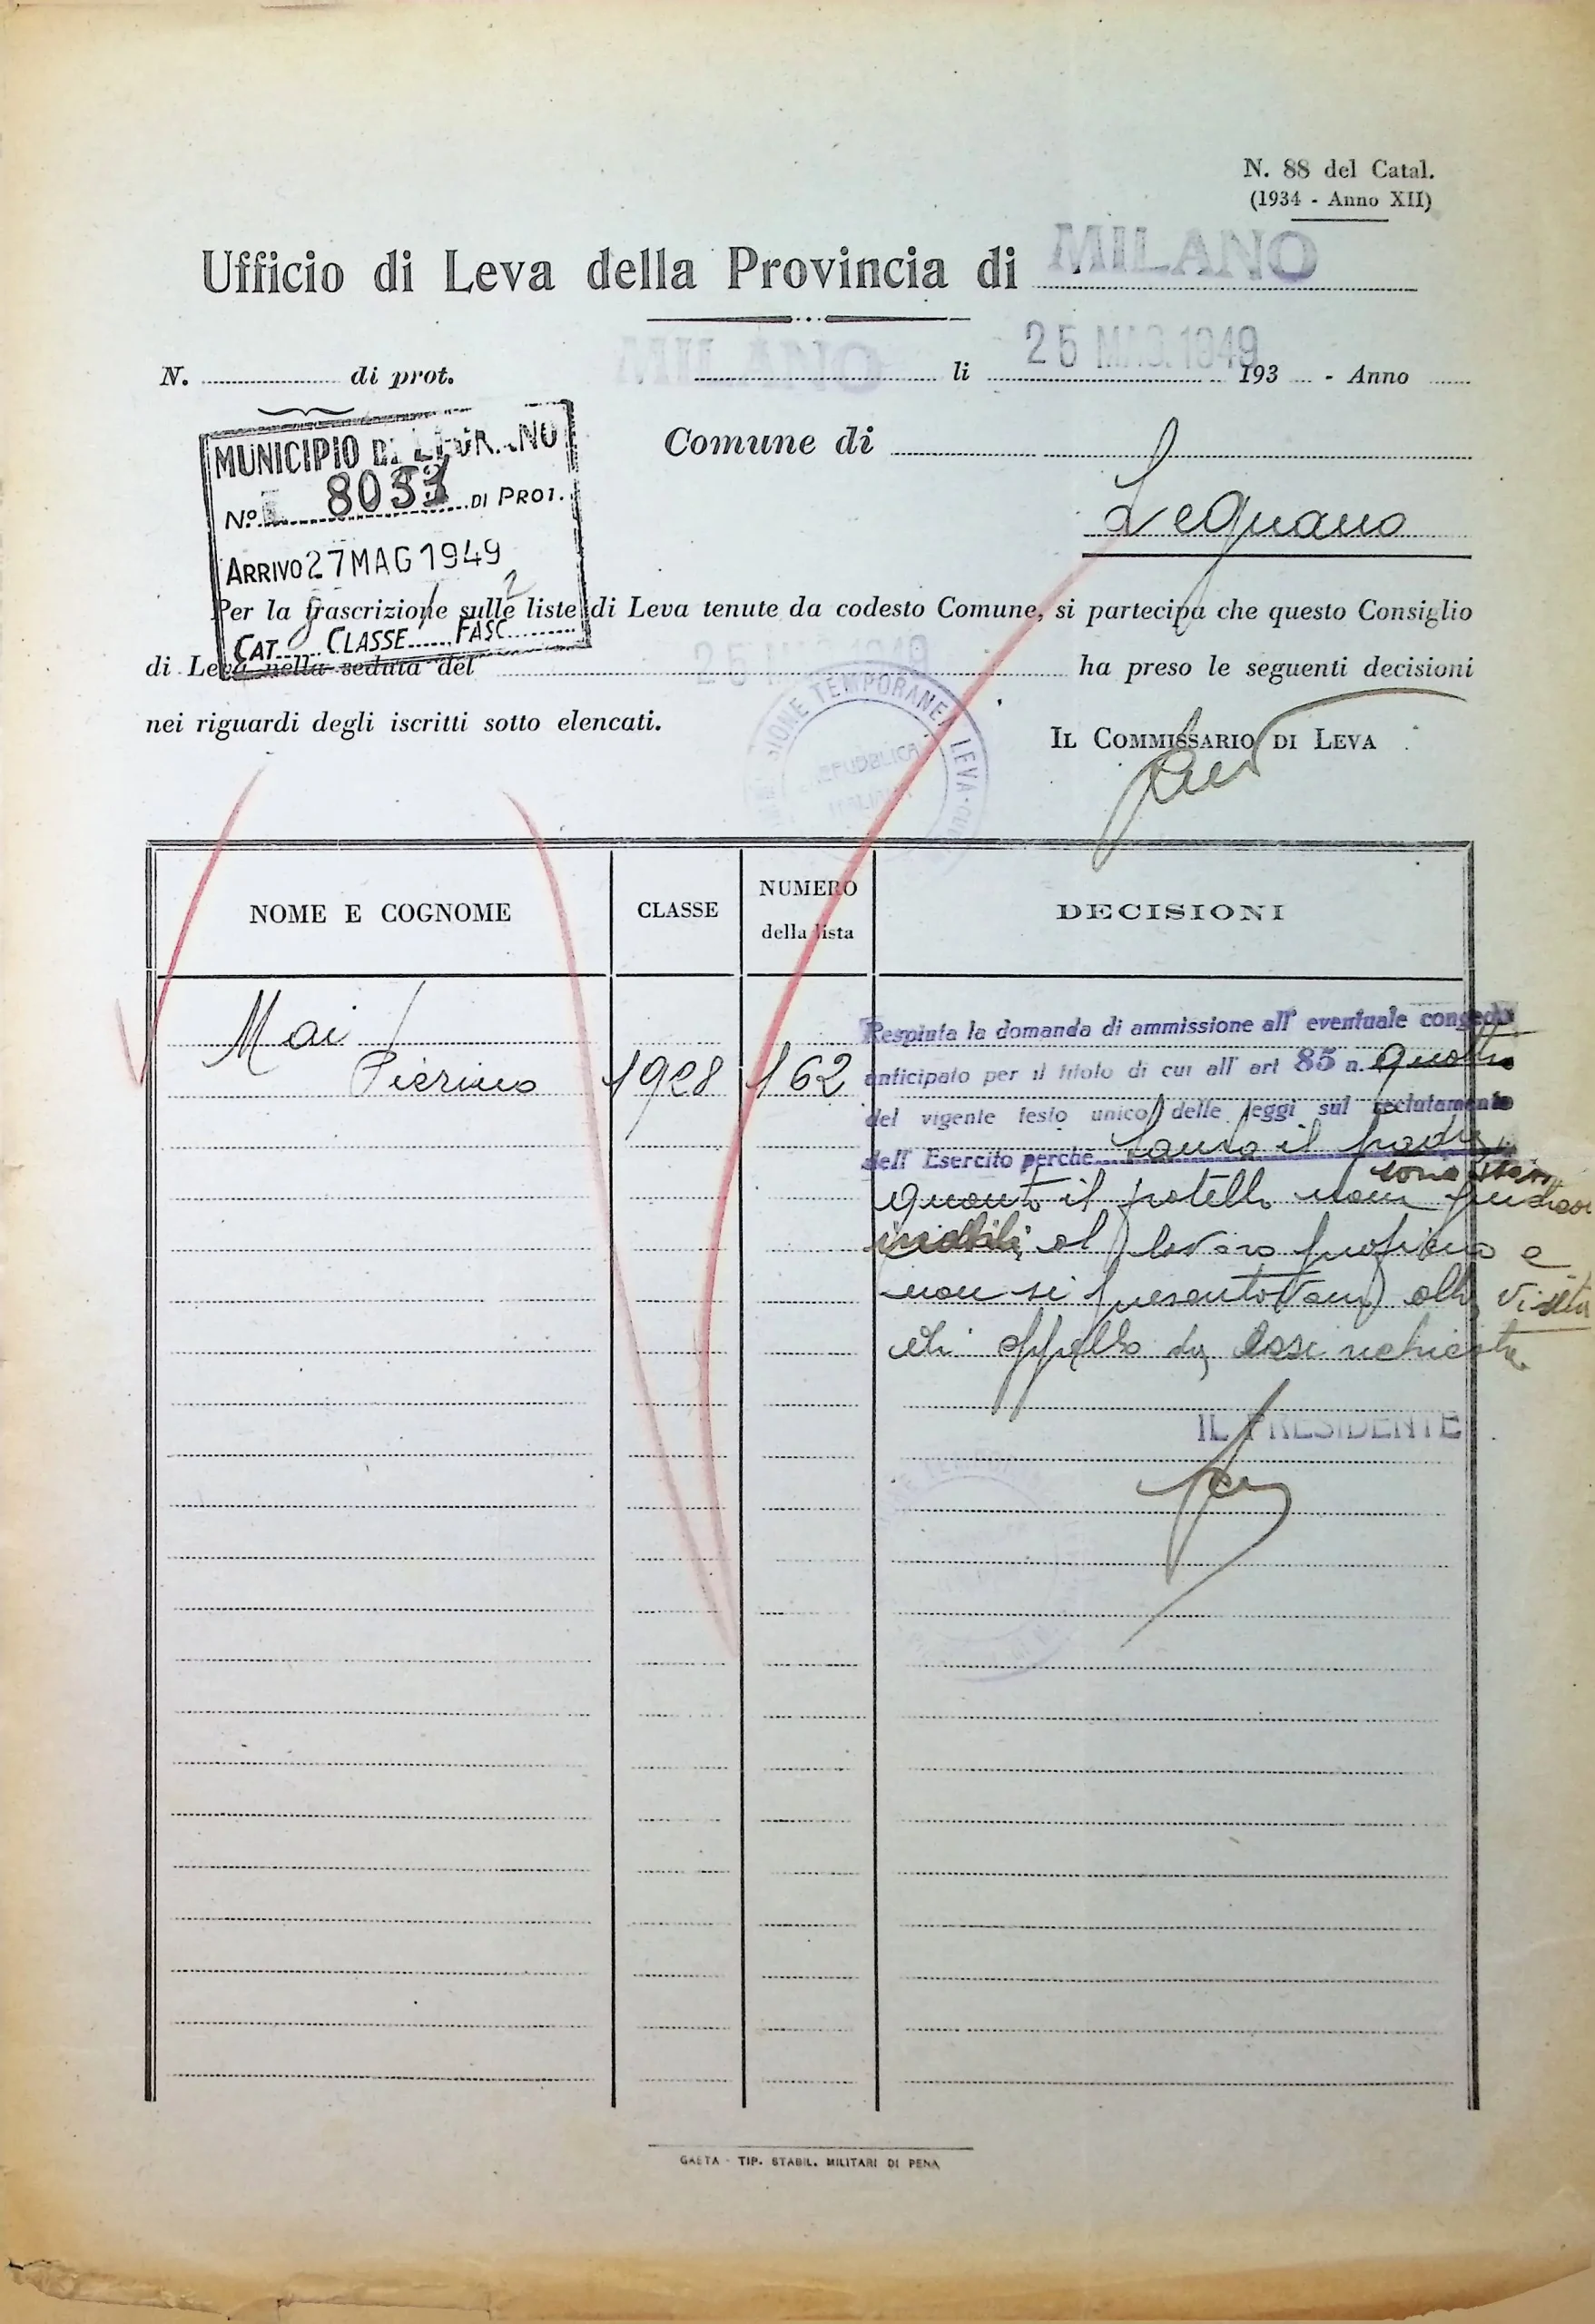 N. 88 del Catal.
(1934 - Anno XII)
Ufficio di Leva della Provincia di MILANO
N. di prot.
MILANO li 25 MAG. 1949 193 - Anno
MUNICIPIO DI LEGNANO
N.º 8033 DI PROT.
ARRIVO 27 MAG 1949
CAT. CLASSE FASC.
Comune di
Legnano
Per la trascrizione sulle liste di Leva tenute da codesto Comune, si partecipa che questo Consiglio
di Leva nella seduta del 25 MAG. 1949 ha preso le seguenti decisioni
nei riguardi degli iscritti sotto elencati.
IL COMMISSARIO DI LEVA
SIONE TEMPORANEA LEVA
REPUBBLICA
ITALIANA
NOME E COGNOME
CLASSE
NUMERO
della lista
DECISIONI
Mai
Pierino
1928
162
Respinta la domanda di ammissione all' eventuale congedo
anticipato per il titolo di cui all' art 85 n. quattro
del vigente testo unico delle leggi sul reclutamento
dell' Esercito perchè tanto il padre
sono stati
quanto il fratello non giudicati
inabili al lavoro proficuo e
non si presentarono alla visita
di appello da essi richiesta
IL PRESIDENTE
GAETA - TIP. STABIL. MILITARI DI PENA